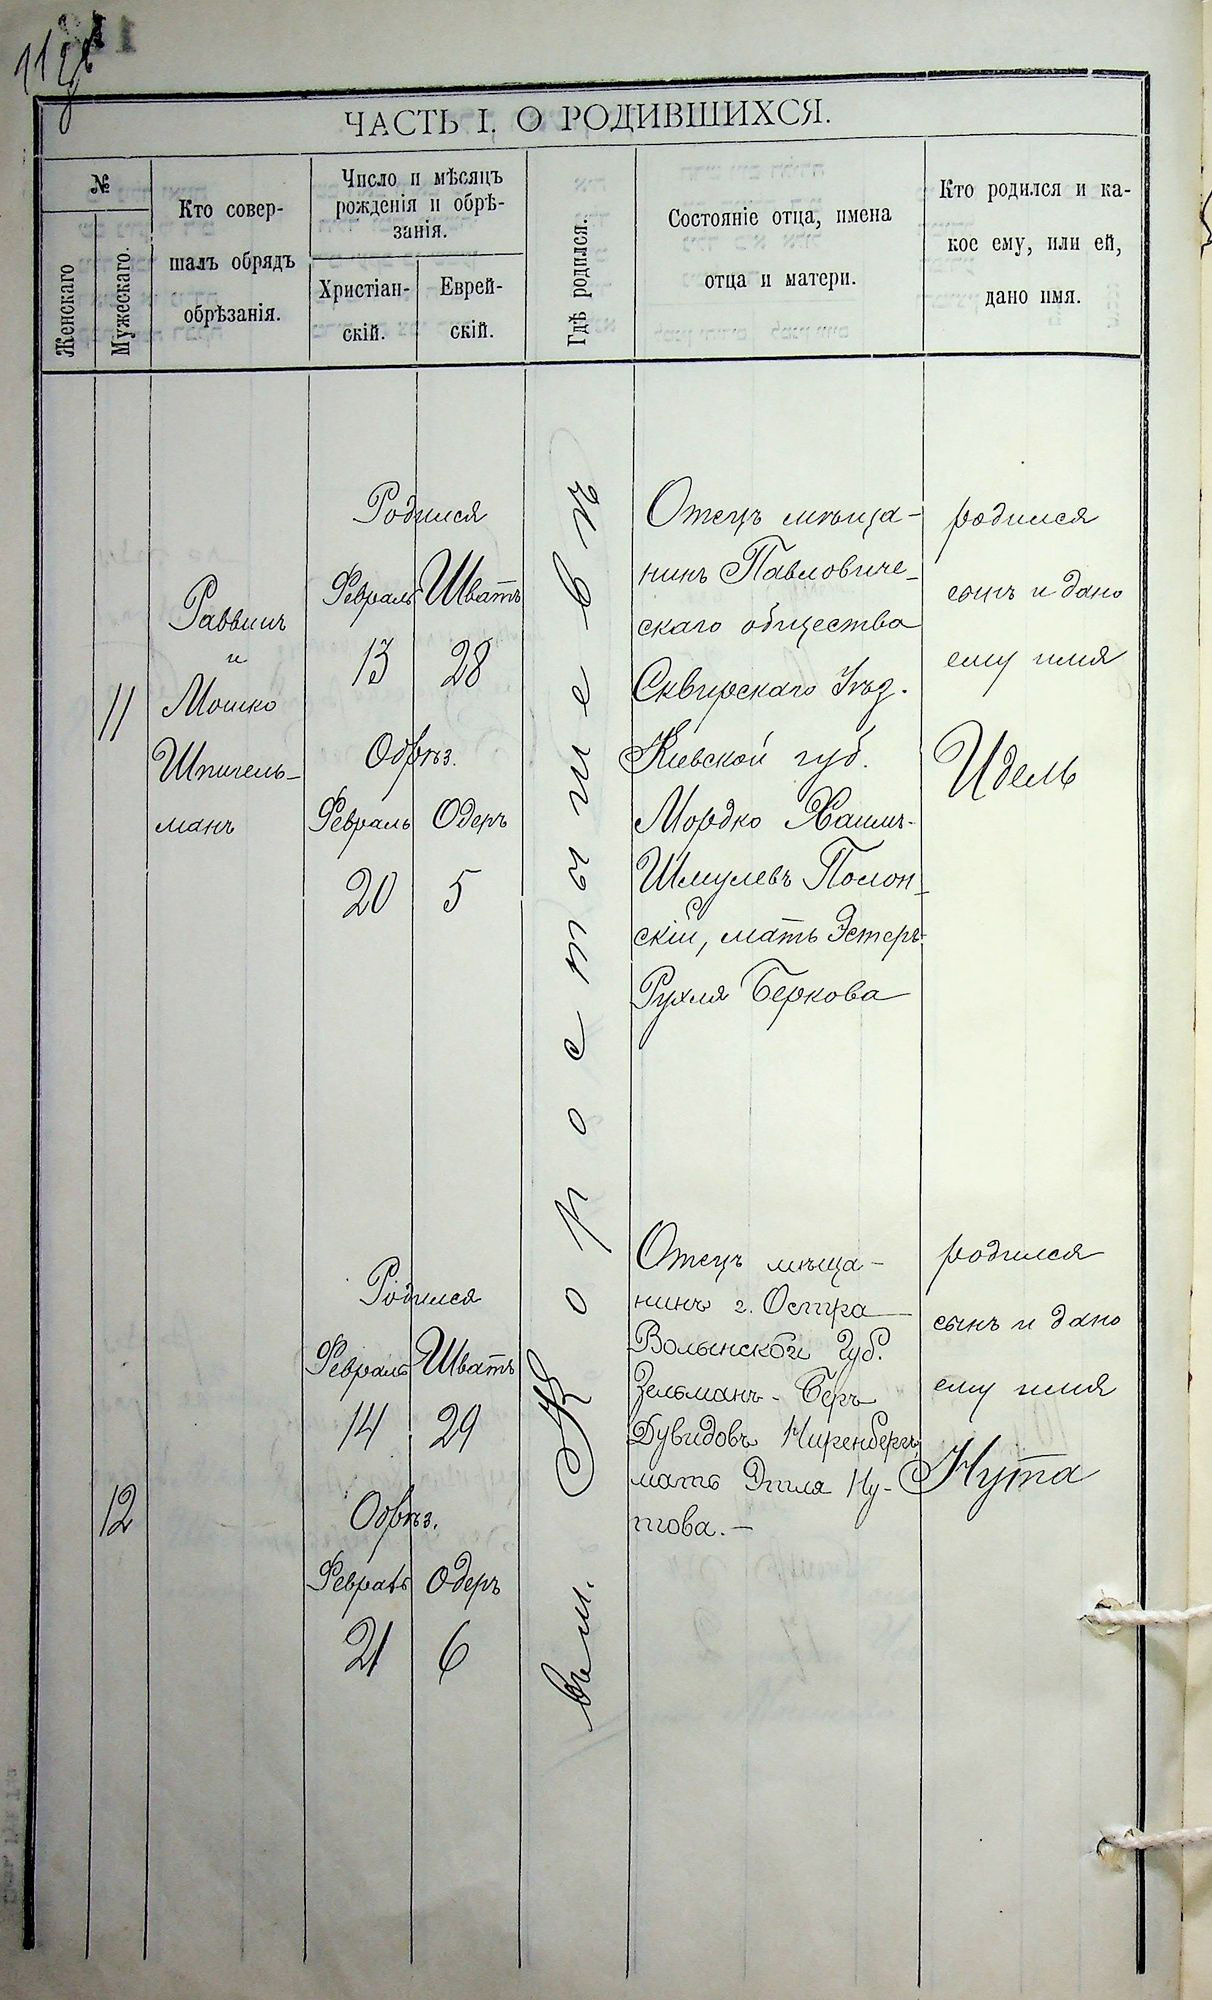 ЧАСТЬ I. О РОДИВШИХСЯ.
№
Женскаго
Мужескаго.
Кто совер-
шалъ обрядъ
обрѣзанія.
Число и мѣсяцъ
рожденія и обрѣ-
занія.
Христіан-
скій.
Еврей-
скій.
Гдѣ родился.
Состояніе отца, имена
отца и матери.
Кто родился и ка-
кое ему, или ей,
дано имя.
11
Раввинъ
и
Мошко
Шпигель-
манъ
Родился
Февраль Шватъ
13 28
Обрѣз.
Февраль Одеръ
20 5
Отецъ мѣща-
нинъ Павловиче-
скаго общества
Сквирскаго Уѣзд.
Кіевской губ.
Мордко Хаимъ-
Шмулевъ Полон-
скій, мать Эстеръ-
Рухля Беркова
родился
сынъ и дано
ему имя
Идель
въ м. Коростышевѣ
12
Родился
Февраль Шватъ
14 29
Обрѣз.
Февраль Одеръ
21 6
Отецъ мѣща-
нинъ г. Остра
Волынской Губ.
Зельманъ-Беръ
Дувидовъ Ниренбергъ,
мать Этля Ну-
това.-
родился
сынъ и дано
ему имя
Нута